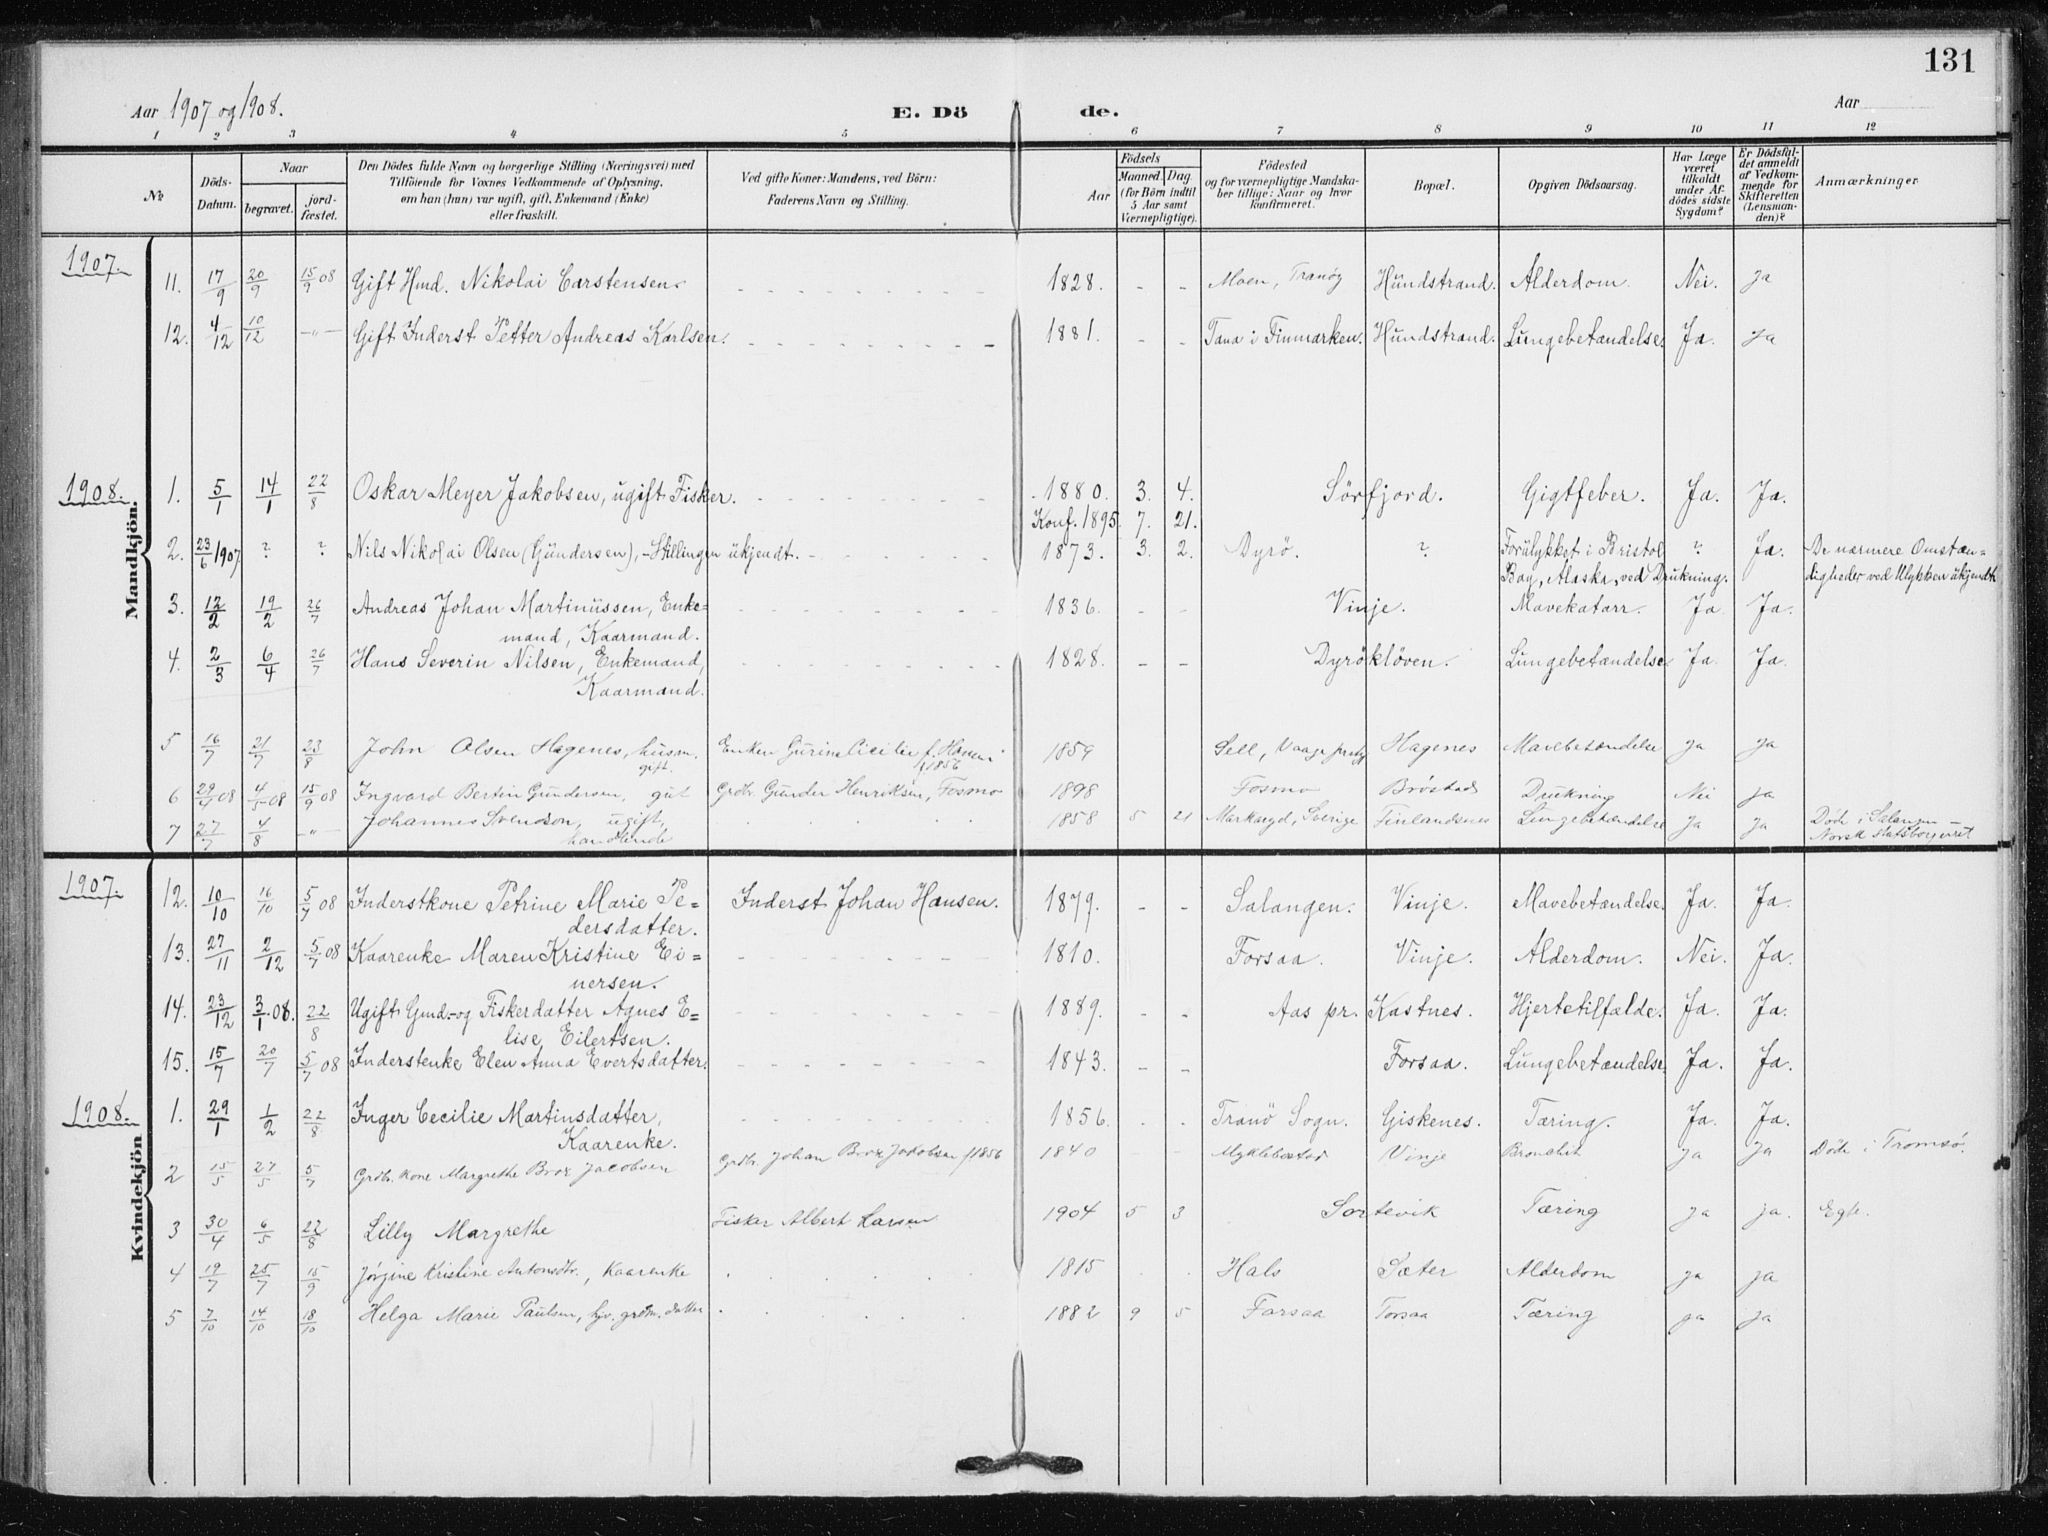 131
Aar 1907 og 1908. E. Dö de. Aar
1 2 3 4 5 6 7 8 9 10 11 12
No. Döds-Datum. Naar begravet. jordfæstet. Den Dödes fulde Navn og borgerlige Stilling (Næringsvei) med Tilföiende for Voxnes Vedkommende af Oplysning, om han (hun) var ugift, gift, Enkemand (Enke) eller fraskilt. Ved gifte Koner: Mandens, ved Börn: Faderens Navn og Stilling. Födsels Aar Maaned. Dag. (for Börn indtil 5 Aar samt Værnepligtige). Födested og for værnepligtige Mandskaber tillige: Naar og hvor konfirmeret. Bopæl. Opgiven Dödsaarsag. Har Læge været tilkaldt under Afdödes sidste Sygdom? Er Dödsfaldet anmeldt af Vedkommende for Skifteretten (Lensmanden)? Anmærkninger
Mandkjön.
1907.
11. 17/9 20/9 15/9 08 Gift Hmd. Nikolai Carstensen 1828. - - Moen, Tranøy Hundstrand. Alderdom. Nei. ja
12. 4/12 10/12 -"- Gift Inderst Petter Andreas Karlsen. 1881. - - Tana i Finmarken. Hundstrand. Lungebetændelse. Ja. ja
1908.
1. 5/1 14/1 22/8 Oskar Meyer Jakobsen, ugift Fisker. 1880. 3. 4. Sörfjord. Gigtfeber. Ja. Ja.
Konf. 1895. 7. 21.
2. 23/6 1907. ? ? Nils Nikolai Olsen (Gundersen), - Stillingen ukjendt. 1873. 3. 2. Dyrö. ? Forulykket i Bristol ? Ja. De nærmere Omstæn=
Bay, Alaska, ved Drukning. digheder ved Ulykken ukjendt
3. 12/2 19/2 26/7 Andreas Johan Martinussen, Enke= 1836. - - Vinje. Mavekatarr. Ja. Ja.
mand, Kaarmand.
4. 2/3 6/4 26/7 Hans Severin Nilsen, Enkemand, 1828. - - Dyröklöven. Lungebetændelse. Ja. Ja.
Kaarmand.
5 16/7 21/7 23/8 John Olsen Hagenes, husm. Enken Gurine Cicilie f. 1859 Sell, Vaage Hagenes Mavebetændelse ja ja
gift. f. 1856
6 29/4 08 4/5 08 15/9 08 Ingvard Bertin Gundersen, gut Grdbr. Gunder Henriksen, Fosmo 1898 Fosmo Bröstad Drukning Nei ja
7 27/7 4/8 -"- Johannes Svendson, ugift, 1858 5 21 Sverige Finlandsnes Lungebetændelse ja ja Döde i Salangen -
handlende Norsk statsborgerret
Kvindekjön
1907.
12. 10/10 16/10 5/7 08 Inderstkone Petrine Marie Pe= Inderst Johan Hansen. 1879. - - Salangen. Vinje. Mavebetændelse. Ja. Ja.
dersdatter.
13. 27/11 2/12 5/7 08 Kaarenke Maren Kristine Ei= 1810. Forsaa. Vinje. Alderdom. Nei. Ja.
nersen.
14. 23/12 3/1 08. 22/8 Ugift Gmd.- og Fiskerdatter Agnes E= 1889. - - Aas pr. Kastnes. Hjertetilfælde. Ja. Ja.
lise Eilertsen.
15. 15/7 20/7 5/7 08 Inderstenke Elen Anna Evertsdatter. 1843. - - Forsaa. Lungebetændelse. Ja. Ja.
1908.
1. 29/1 1/2 22/8 Inger Cecilie Martinsdatter, 1856. - - Tranö Sogn. Giskenes. Tæring. Ja. Ja.
Kaarenke.
2 15/5 27/5 5/7 Grdbr. kone Margrethe Brox Jacobsen Grdbr. Johan Brox Jakobsen f 1856 1840 - - Myklebostad Vinje Bronchit ja ja Döde i Tromsö.
3 30/4 6/5 22/8 Lilly Margrethe Fisker Albert Larsen 1904 5 3 Sortevik Tæring ja ja. Egte.
4 19/7 25/7 15/9 Jörgine Kristine Antonsdtr., Kaarenke 1815 Hals Sæter Alderdom ja ja
5 7/10 14/10 18/10 Helga Marie Paulsen, datter 1882 9 5 Forsaa Forsaa Tæring ja ja